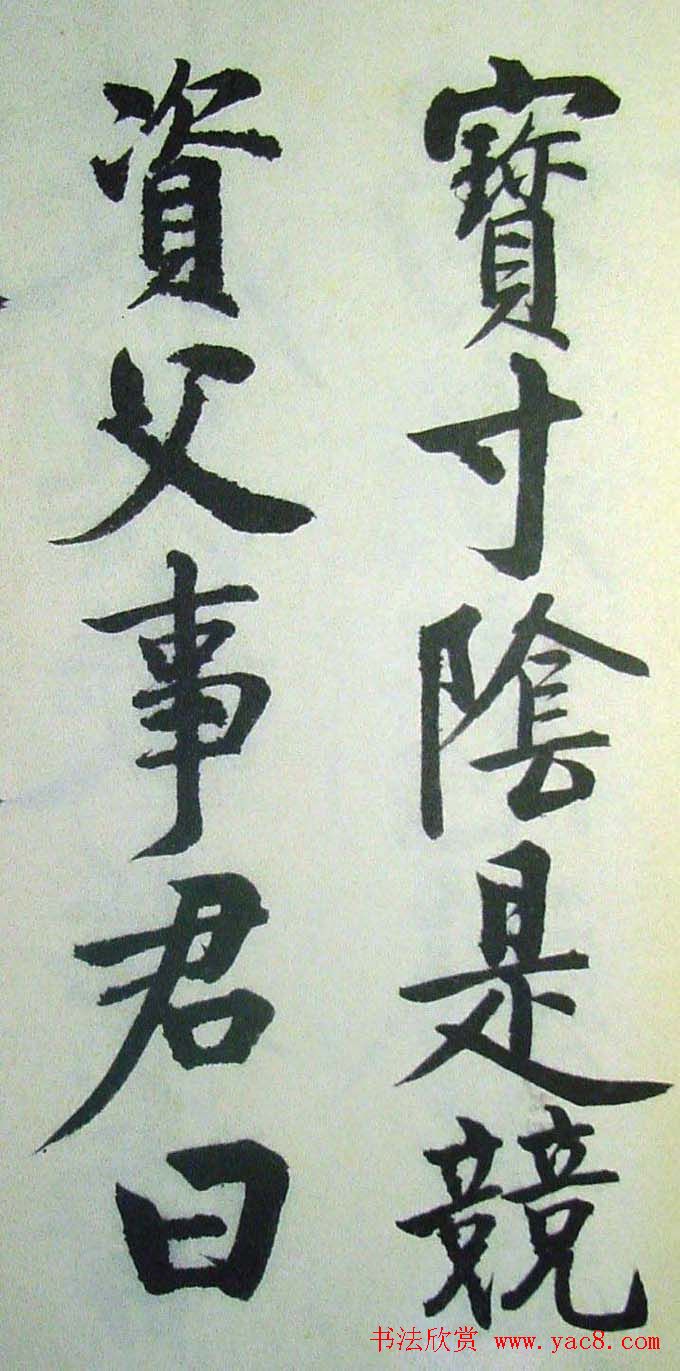 寶寸陰是競
資父事君曰
书法欣赏 www.yac8.com